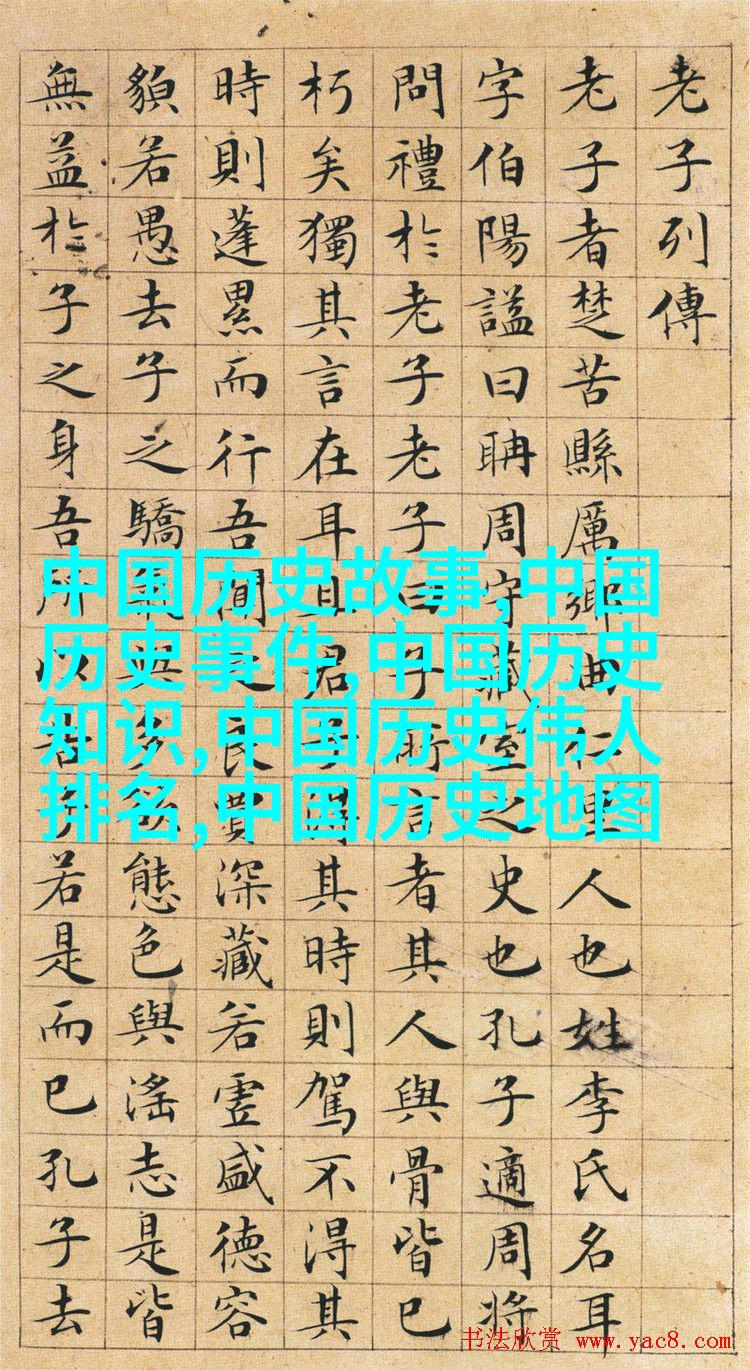 老子列傳
老子者楚苦縣厲鄉曲仁里人也姓李氏名耳
字伯陽謚曰耼周守藏室之史也孔子適周將
問禮於老子老子曰子所言者其人與骨皆已
朽矣獨其言在耳且君子得其時則駕不得其
時則蓬累而行吾聞之良賈深藏若虛盛德容
貌若愚去子之驕氣與多欲態色與淫志是皆
無益於子之身吾所以告子若是而已孔子去
中国历史故事,中国
历史事件,中国历史
知识,中国历史伟人
排名,中国历史地图
书法欣赏 www.yac8.com